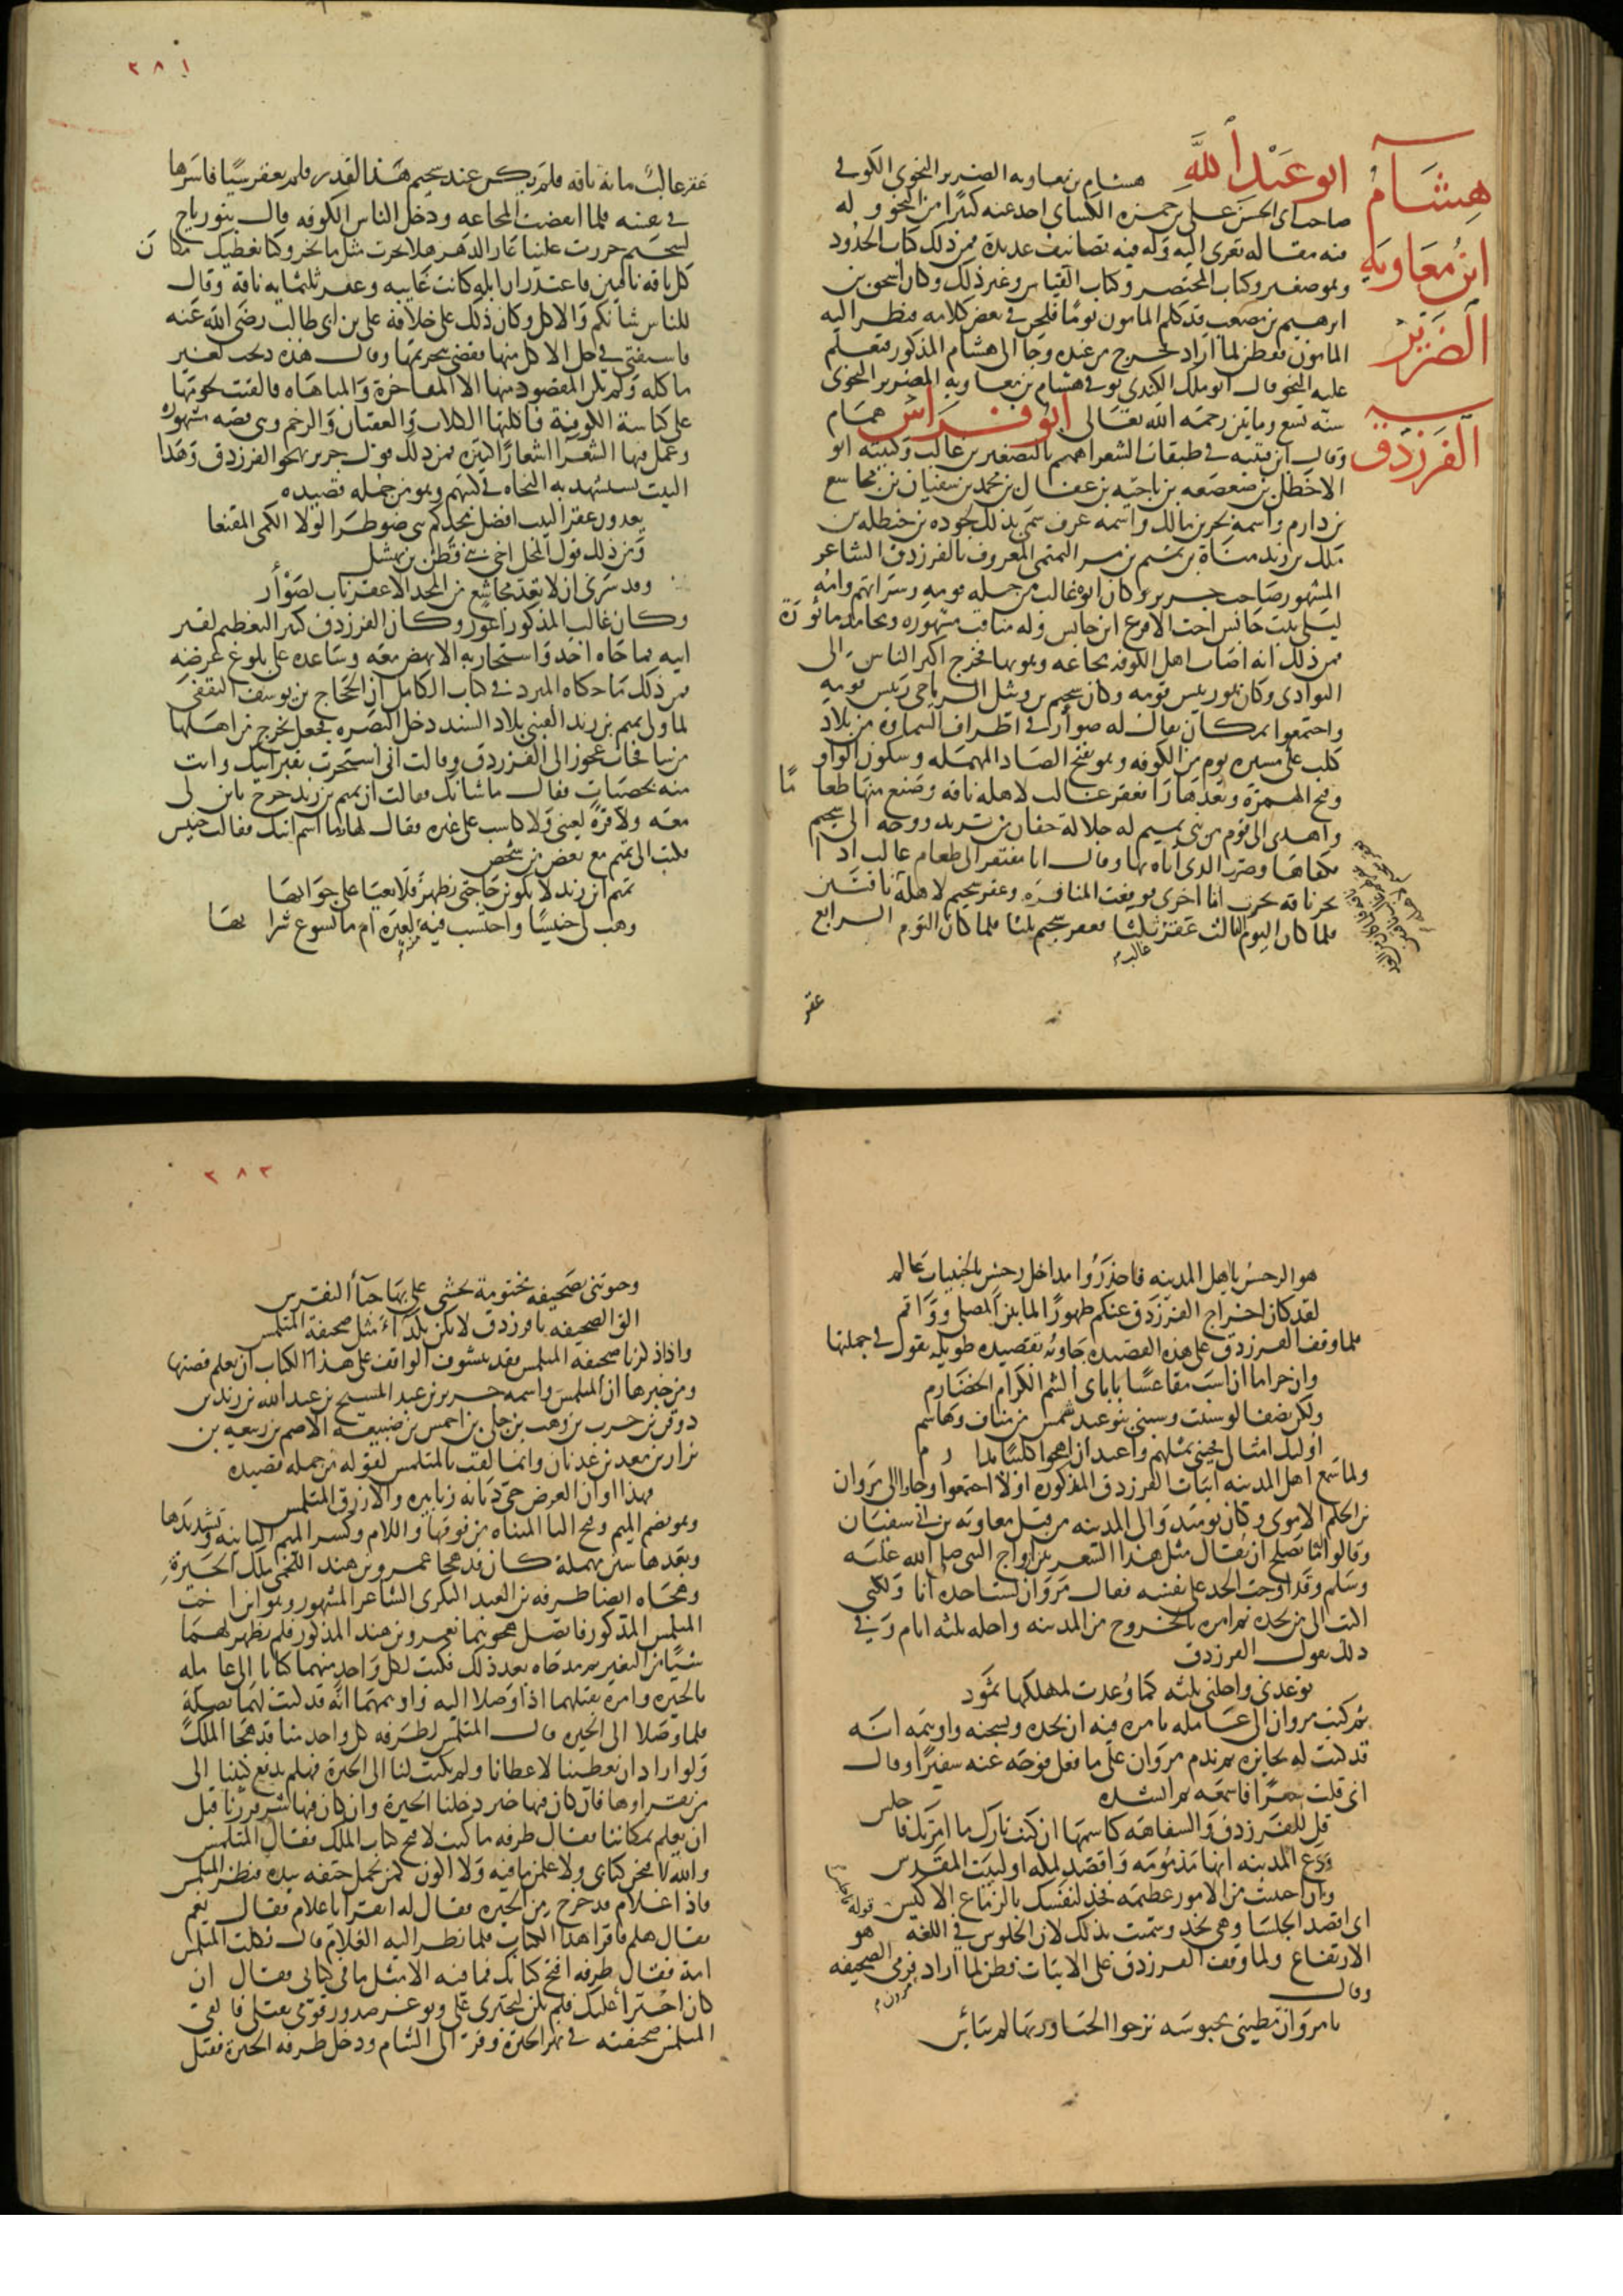 هشام
ابن معاوية
الضرير
الفرزدق
ابو عبد الله هشام بن معاويه الضرير النحوى الكوفى
صاحب ابى الحسن على بن حمزه الكساى اخد عنه كثيرا من النحو و له
فيه مقاله تعزى اليه وله فيه تصانيف عديدة فمن ذلك كتاب الحدود
وهو صغير وكتاب المختصر وكتاب القياس وغير ذلك وكان اسحق بن
ابرهيم بن مصعب قد كلم المامون يومًا فلحن فى بعض كلامه فنظر اليه
المامون ففطن لما اراد فخرج من عنده وجا الى هشام المذكور فتعلم
عليه النحو قال ابو ملك الكندى توفى هشام بن معاويه الضرير النحوى
سنه تسع وماتين رحمه الله تعالى ابو فراس همام
وقال ابن قتيبه فى طبقات الشعرا هميم بالتصغير بن غالب وكنيته ابو
الاخطل بن صعصعه بن ناجيه بن عقال بن محمد بن سفيان بن مجاشع
بن دارم واسمه بحر بن مالك واسمه عرف سمى بذلك لجوده بن حنظله بن
ملك بن زيد مناة بن تميم بن مر التميمى المعروف بالفرزدق الشاعر
المشهور صاحب جرير وكان ابوه غالب من جله قومه وسراتهم وامه
ليلى بنت حابس اخت الاقرع ابن حابس وله مناقب مشهوره ومحامد ماثورة
فمن ذلك انه اصاب اهل الكوفه مجاعه وهو بها فخرج اكثر الناس الى
البوادى وكان هو رييس قومه وكان سحيم بن وثيل الرياحى رييس قومه
واجتمعوا بمكان يقال له صوأر فى اطراف السماوة من بلاد
كلب على مسيره يوم من الكوفه وهو بفتح الصاد المهمله وسكون الواو
وفتح الهمزة وبعدها را فعقر غالب لاهله ناقه وصنع منها طعامًا
واهدى الى قوم من بنى تميم له جلالة جفان من ثريد ووجه الى سحيم
جفنة
فكفاها وضرب الذى اتاه بها وقال انا مفتقر الى طعام غالب اذا
نحر ناقه نحرت انا اخرى فوقعت المنافره وعقر سحيم لاهله ناقتين
فلما كان اليوم الثالث عقر غالب ثلثا فعقر سحيم ثلثا فلما كان اليوم الرابع
عقر
٢٨١
عقر غالب مائة ناقه فلم يكن عند سحيم هذا القدر فلم يعقر شيا فاسرها
فى نفسه فلما انقضت المجاعه ودخل الناس الكوفه قال بنو رياح
لسحيم جررت علينا عار الدهر هلا نحرت مثل ما نحر وكنا نعطيك مكان
كل ناقه ناقتين فاعتذر ان ابله كانت غايبه وعقر ثلثمايه ناقة وقال
للناس شانكم والاكل وكان ذلك على خلافة على بن ابى طالب رضى الله عنه
فاستفتى فى حل الاكل منها فقضى بحرمتها وقال هذه ذبحت لغير
ماكله ولم يكن المقصود منها الا المفاخرة والمباهاه فالقيت لحومها
على كناسة الكوفة فاكلتها الكلاب والعقبان والرخم وهى قصه مشهوره
وعمل فيها الشعرا اشعارًا كثيره فمن ذلك قول جرير يهجو الفرزدق وهذا
البيت يستشهد به النحاه فى كتبهم وهو من جمله قصيده
يعدون عقر النيب افضل مجدكم بنى ضوطرا لولا الكمى المقنعا
ومن ذلك قول المحل اخى بنى قطن بن نهشل
وقد سرنى ان لا تعد مجاشع من المجد الا عقر ناب بصوأر
وكان غالب المذكور اعور وكان الفرزدق كثير التعظيم لقبر
ابيه فما جاه احد واستجار به الا نهض معه وساعده على بلوغ غرضه
فمن ذلك ما حكاه المبرد فى كتاب الكامل ان الحجاج بن يوسف الثقفى
لما ولى تميم بن زيد القينى بلاد السند دخل البصره فجعل يخرج من اهلها
من شا فجات عجوز الى الفرزدق وقالت انى استجرت بقبر ابيك واتت
منه بحصيات فقال ما شانك فقالت ان تميم بن زيد خرج بابن لى
معه ولا قرة لعينى ولا كاسب على غيره فقال لها وما اسم ابنك فقالت خنيس
فكتب الى تميم مع بعض من شخص
تميم ابن زيد لا تكونن حاجتى بظهر فلا يعيا على جوابها
وهب لى خنيسًا واحتسب فيه منة لعبرة ام ما يسوغ شرابها
هو الرجس يا هل المدينه فاحذروا مداخل رجس بالخبيثات عالم
لقد كان اخراج الفرزدق عنكم طهورًا لما بين المصلى وواقم
فلما وقف الفرزدق على هذه القصيده جاوبه بقصيده طويله يقول فى جملتها
وان حراما ان اسب مقاعسًا باباى الشم الكرام الخضارم
ولكن نصفا لو سببت وسبنى بنو عبد شمس من مناف وهاشم
اوليك امثالى فجيئنى بمثلهم واعبد ان اهجوا كليبًا بدارم
ولما سمع اهل المدينه ابيات الفرزدق المذكوره اولا اجتمعوا وجاوا الى مروان
بن الحكم الاموى وكان يوميذ والى المدينه من قبل معاويه بن ابى سفيان
وقالوا لنا يصلح ان يقال مثل هذا الشعر بين ازواج النبى صلى الله عليه
وسلم وقد اوجب الحد على نفسه فقال مروان لست احده انا ولكنى
اكتب الى من يحده ثم امره بالخروج من المدينه واجله ثلثه ايام وفى
ذلك يقول الفرزدق
توعدنى واجلنى ثلثه كما وعدت لمهلكها ثمود
ثم كتب مروان الى عامله يامره فيه ان يحده ويسجنه واوهمه انه
قد كتب له بجايزه ثم ندم مروان على ما فعل فوجه عنه سفيرًا وقال
انى قلت شعرًا فاسمعه ثم انشده
قل للفرزدق والسفاهه كاسمها ان كنت تارك ما امرتك فاجلس
ودع المدينه انها مذمومه واقصد لمكه او لبيت المقدس
وان اجتنبت من الامور عظيمه فخذ لنفسك بالزماع الاكيس
قوله فاجلس
اى اقصد الجلسا وهى نجد وسميت بذلك لان الجلوس فى اللغه هو
الارتفاع ولما وقف الفرزدق على الابيات فطن لما اراد مروان فرمى الصحيفه
وقال
يا مروان مطيتى محبوسه ترجوا الحبا وربها لم يائس
٢٨٣
وحبوتنى بصحيفه مختومة يخشى على بها حبأ النقرس
الق الصحيفه يا فرزدق لا تكن نكدآء مثل صحيفة المتلمس
واذ ذكرنا صحيفه المتلمس فقد يتشوف الواقف على هذا الكتاب ان يعلم قصتها
ومن خبرها ان المتلمس واسمه جرير بن عبد المسيح بن عبد الله بن زيد بن
دوفن بن حرب بن وهب بن جلى بن احمس بن ضبيعه الاصم بن ربيعه بن
نزار بن معد بن عدنان وانما لقب بالمتلمس لقوله من جمله قصيده
فهذا اوان العرض حى ذبابه زنابيره والازرق المتلمس
وهو بضم الميم وفتح التا المثناه من فوقها واللام وكسر الميم الثانيه وتشديدها
وبعدها سين مهملة كان قد هجا عمرو بن هند اللخمى ملك الحيرة
وهجاه ايضا طرفه بن العبد البكرى الشاعر المشهور وهو ابن اخت
المتلمس المذكور فاتصل هجوهما بعمرو بن هند المذكور فلم يظهر لهما
شيًا من التغير ثم مدحاه بعد ذلك فكتب لكل واحد منهما كتابا الى عامله
بالحيره وامره بقتلهما اذا وصلا اليه واوهمهما انه قد كتب لهما بصلة
فلما وصلا الى الحيره قال المتلمس لطرفه كل واحد منا قد هجا الملك
ولو اراد ان يعطينا لاعطانا ولم يكتب لنا الى الحيرة فهلم ندفع كتبنا الى
من يقراوها فان كان فيها خير دخلنا الحيرة وان كان فيها شر فررنا قبل
ان يعلم بمكاننا فقال طرفه ما كنت لافتح كتاب الملك فقال المتلمس
والله لافتحن كتابى ولاعلمن ما فيه ولا اكون كمن يحمل حتفه بيده فنظر المتلمس
فاذا غلام قد خرج من الحيره فقال له اتقرا يا غلام فقال نعم
فقال هلم فاقرا هذا الكتاب فلما نظر اليه الغلام قال ثكلت المتلمس
امه فقال لطرفه افتح كتابك فما فيه الا مثل ما فى كتابى فقال ان
كان اجترأ عليك فلم يكن ليجترى على ويوغر صدور قومى بقتلى فالقى
المتلمس صحيفته فى نهر الحيرة وفر الى الشام ودخل طرفه الحيرة فقتل